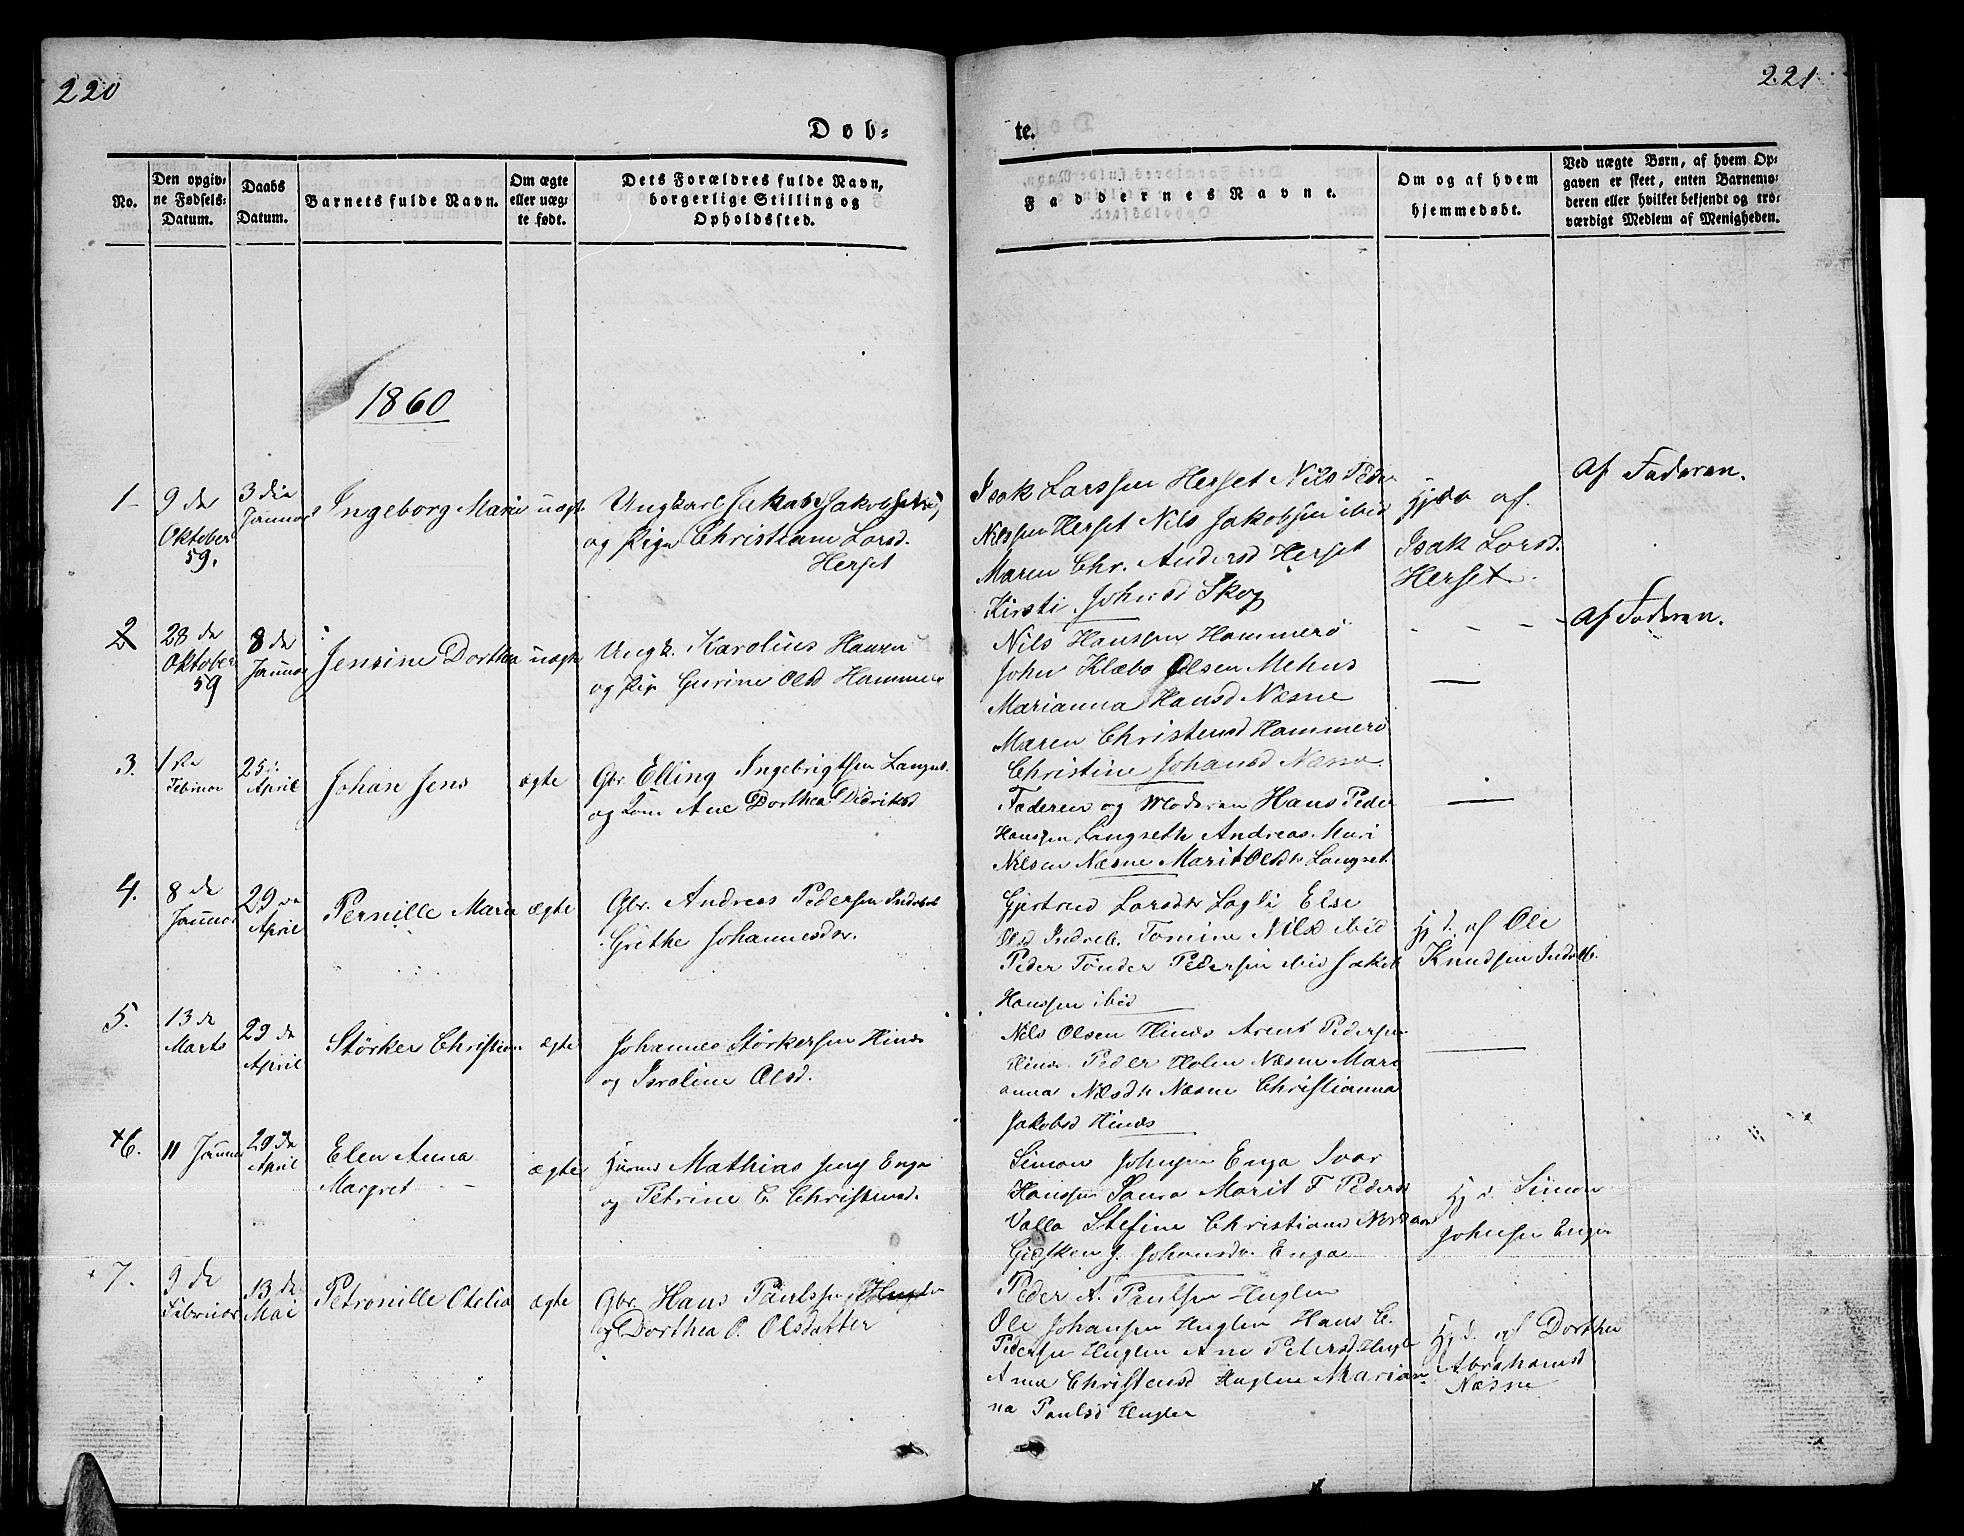 220
221
Døb=
te.
No.
Den opgiv=
ne Fødsels=
Datum.
Daabs
Datum.
Barnets fulde Navn.
Om ægte
eller uæg=
te født.
Dets Forældres fulde Navn,
borgerlige Stilling og
Opholdssted.
Faddernes Navne.
Om og af hvem
hjemmedøbt.
Ved uægte Børn, af hvem Op=
gaven er skeet, enten Barnemo=
deren eller hvilket bekjendt og tro=
værdigt Medlem af Menigheden.
1860
1
9 de
Oktober
59.
3 die
Januar
Ingeborg Marie
uægte
Ungkarl Jakob Jakobsen
og Pige Christiane Larsd.
Herset
Isak Larssen Herset Nils Peder
Nilssen Herset Nils Jakobsen ibid
Maren Chr. Andersd Herset
Kirsti Johnsd Skog
Hjdø af
Isak Larsd.
Herset
Af Faderen.
2
28 de
Oktober
59
8 de
Januar
Jensine Dorthea
uægte
Ungk. Karolius Hansen
og Pig Gurine Olsd Hammerø
Nils Hanssen Hammerø
John Klæbo Olsen Mehus
Marianna Hansd Næsne
Maren Christensd Hammerø
Christine Johansd Næsne
Af Faderen.
3.
1ste
Februar
25.
April
Johan Jens
ægte
Gbr. Elling Ingebrigtsen Langset
og Kone Ane Dorthea Didriksd
Faderen og Moderen Hans Peder
Hanssen Langseth Andreas Mari
Nilsen Næsne Marit Olsdtr Langset.
4.
8 de
Januar
29 de
April
Pernille Marie
ægte
Gbr. Andreas Pedersen Indreb
Grethe Johannesdtr.
Gjertrud Larsdtr Lagli Else
Olsd Indreb. Tomine Nilsd ibid
Peder Tønder Pedersen ibid Jakob
Hanssen ibid
Hjd. af Ole
Knudsen Indreb.
5.
13 de
Marts
29 de
April
Størker Christian
ægte
Johannes Størkersen Hinæs
og Isroline Olsd.
Nils Olsen Hinæs Arent Pedersen
Hinæs Peder Holm Næsne Mari
anna Nilsdtr Næsne Christianna
Jakobsd Hinæs
+6.
11 Januar
29 de
April
Elen Anna
Margret
ægte
Mathias Enga
og Petrine C. Christensd.
Simon Johnsen Enga Ivar
Hanssen Marit F Pedersd
Valla Stefine Christiansd
Gidsken J. Johansdtr. Enga
Hjd. Simon
Johnsen Enga
+7.
9 de
Februar
13 de
Mai
Petronille Otelia
ægte
Gbr. Hans Paulssen Huglen
og Dorthea P. Olsdatter
Peder A. Paulsen Huglen
Ole Johansen Huglen Hans C.
Pedersen Huglen Ane Petersd Hugle
Anne Christensd Huglen Marian
na Paulsd Huglen
Hjd. af Dorthea
Abrahamsd
Næsne